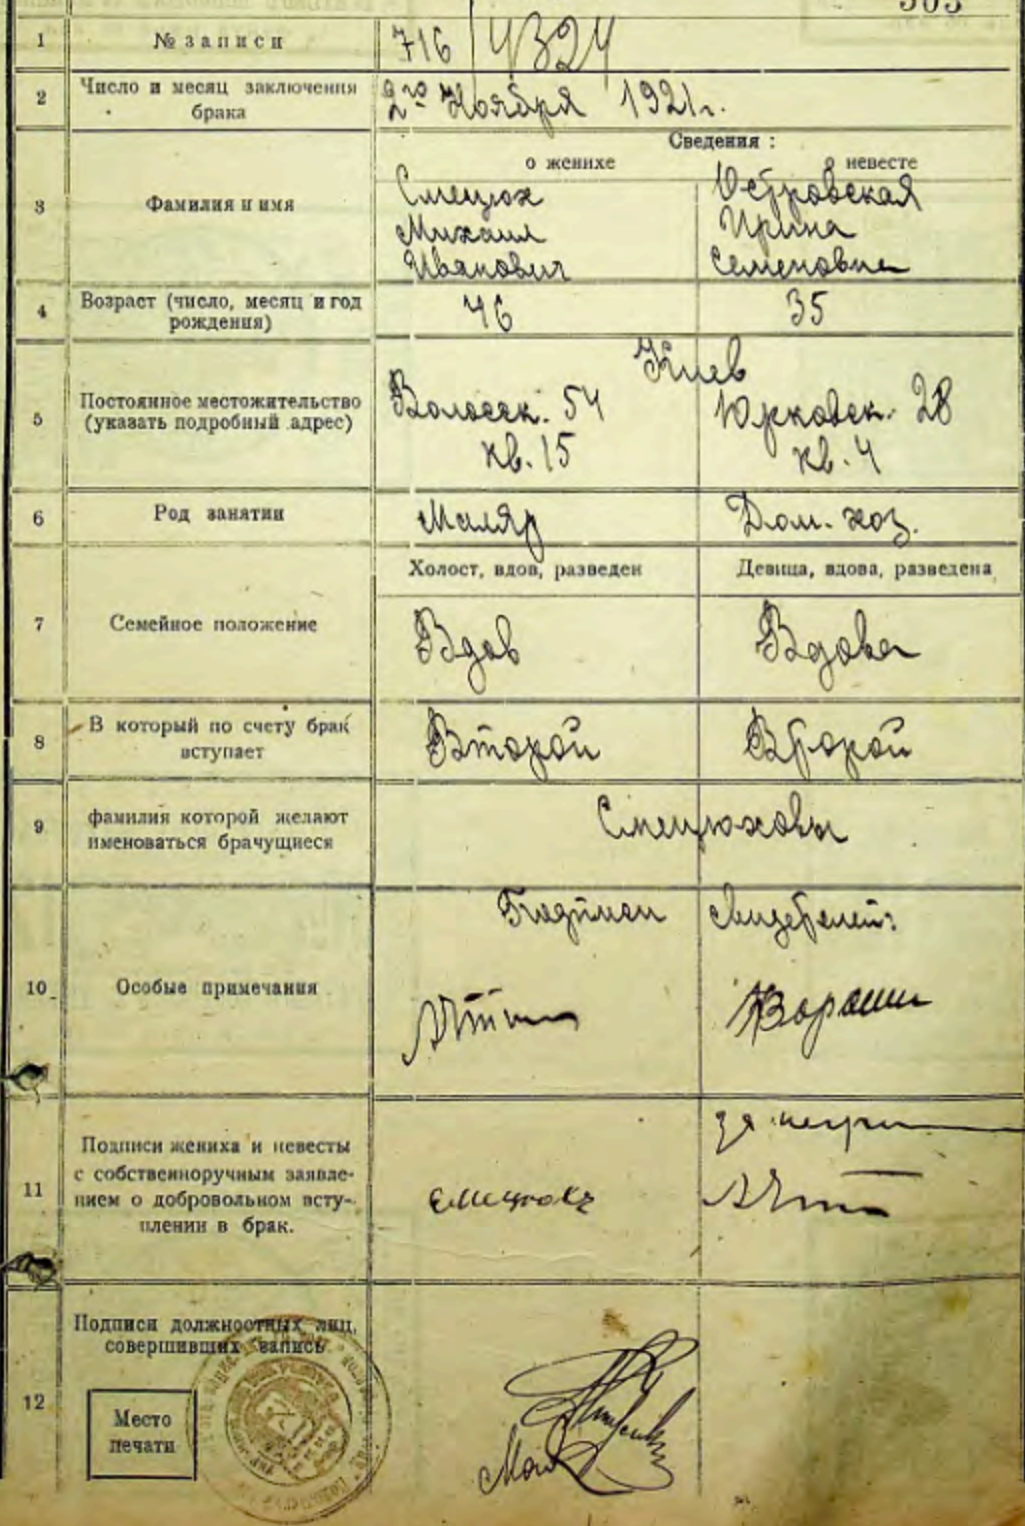 1 № записи 716/4324
2 Число и месяц заключения
брака
2го Ноября 1921г.
Сведения :
о женихе о невесте
3 Фамилия и имя
Смецюх Островская
Михаил Ирина
Иванович Семеновна
4 Возраст (число, месяц и год
рождения)
46 35
Киев
5 Постоянное местожительство
(указать подробный адрес)
Волосск. 54 Юрковск. 28
кв. 15 кв. 4
6 Род занятии Маляр Дом. хоз.
Холост, вдов, разведен Девица, вдова, разведена
7 Семейное положение Вдов Вдова
8 В который по счету брак
вступает
Второй Второй
9 фамилия которой желают
именоваться брачущиеся
Смецюховы
10 Особые примечания
11 Подписи жениха и невесты
с собственноручным заявле-
нием о добровольном всту-
плении в брак.
за негр
12 Подписи должностных лиц,
совершивших запись
Место
печати